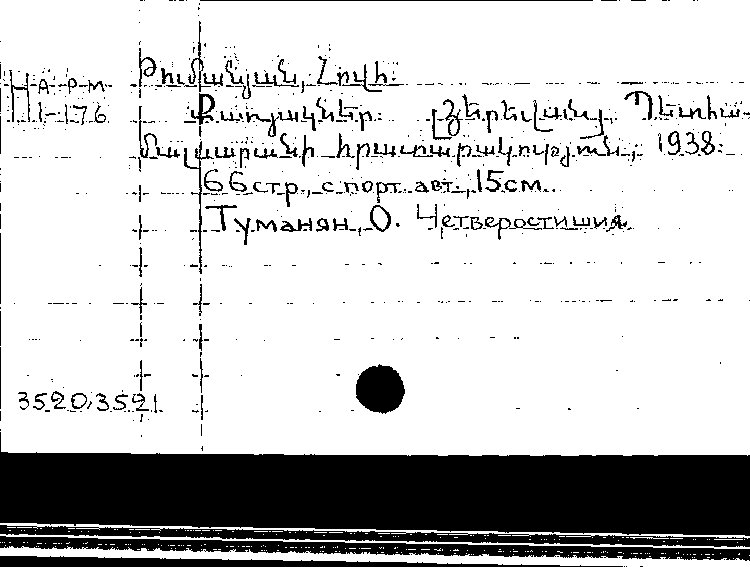 Թումանյան, Հովհ.
Н-А-Р-М-
1-176
Քառյակներ. [Երևան] Պետհա-
մալսարանի հրատարակություն, 1938.
66 стр., с порт. авт., 15 см.
Туманян, О. Четверостишия.
3520,3521